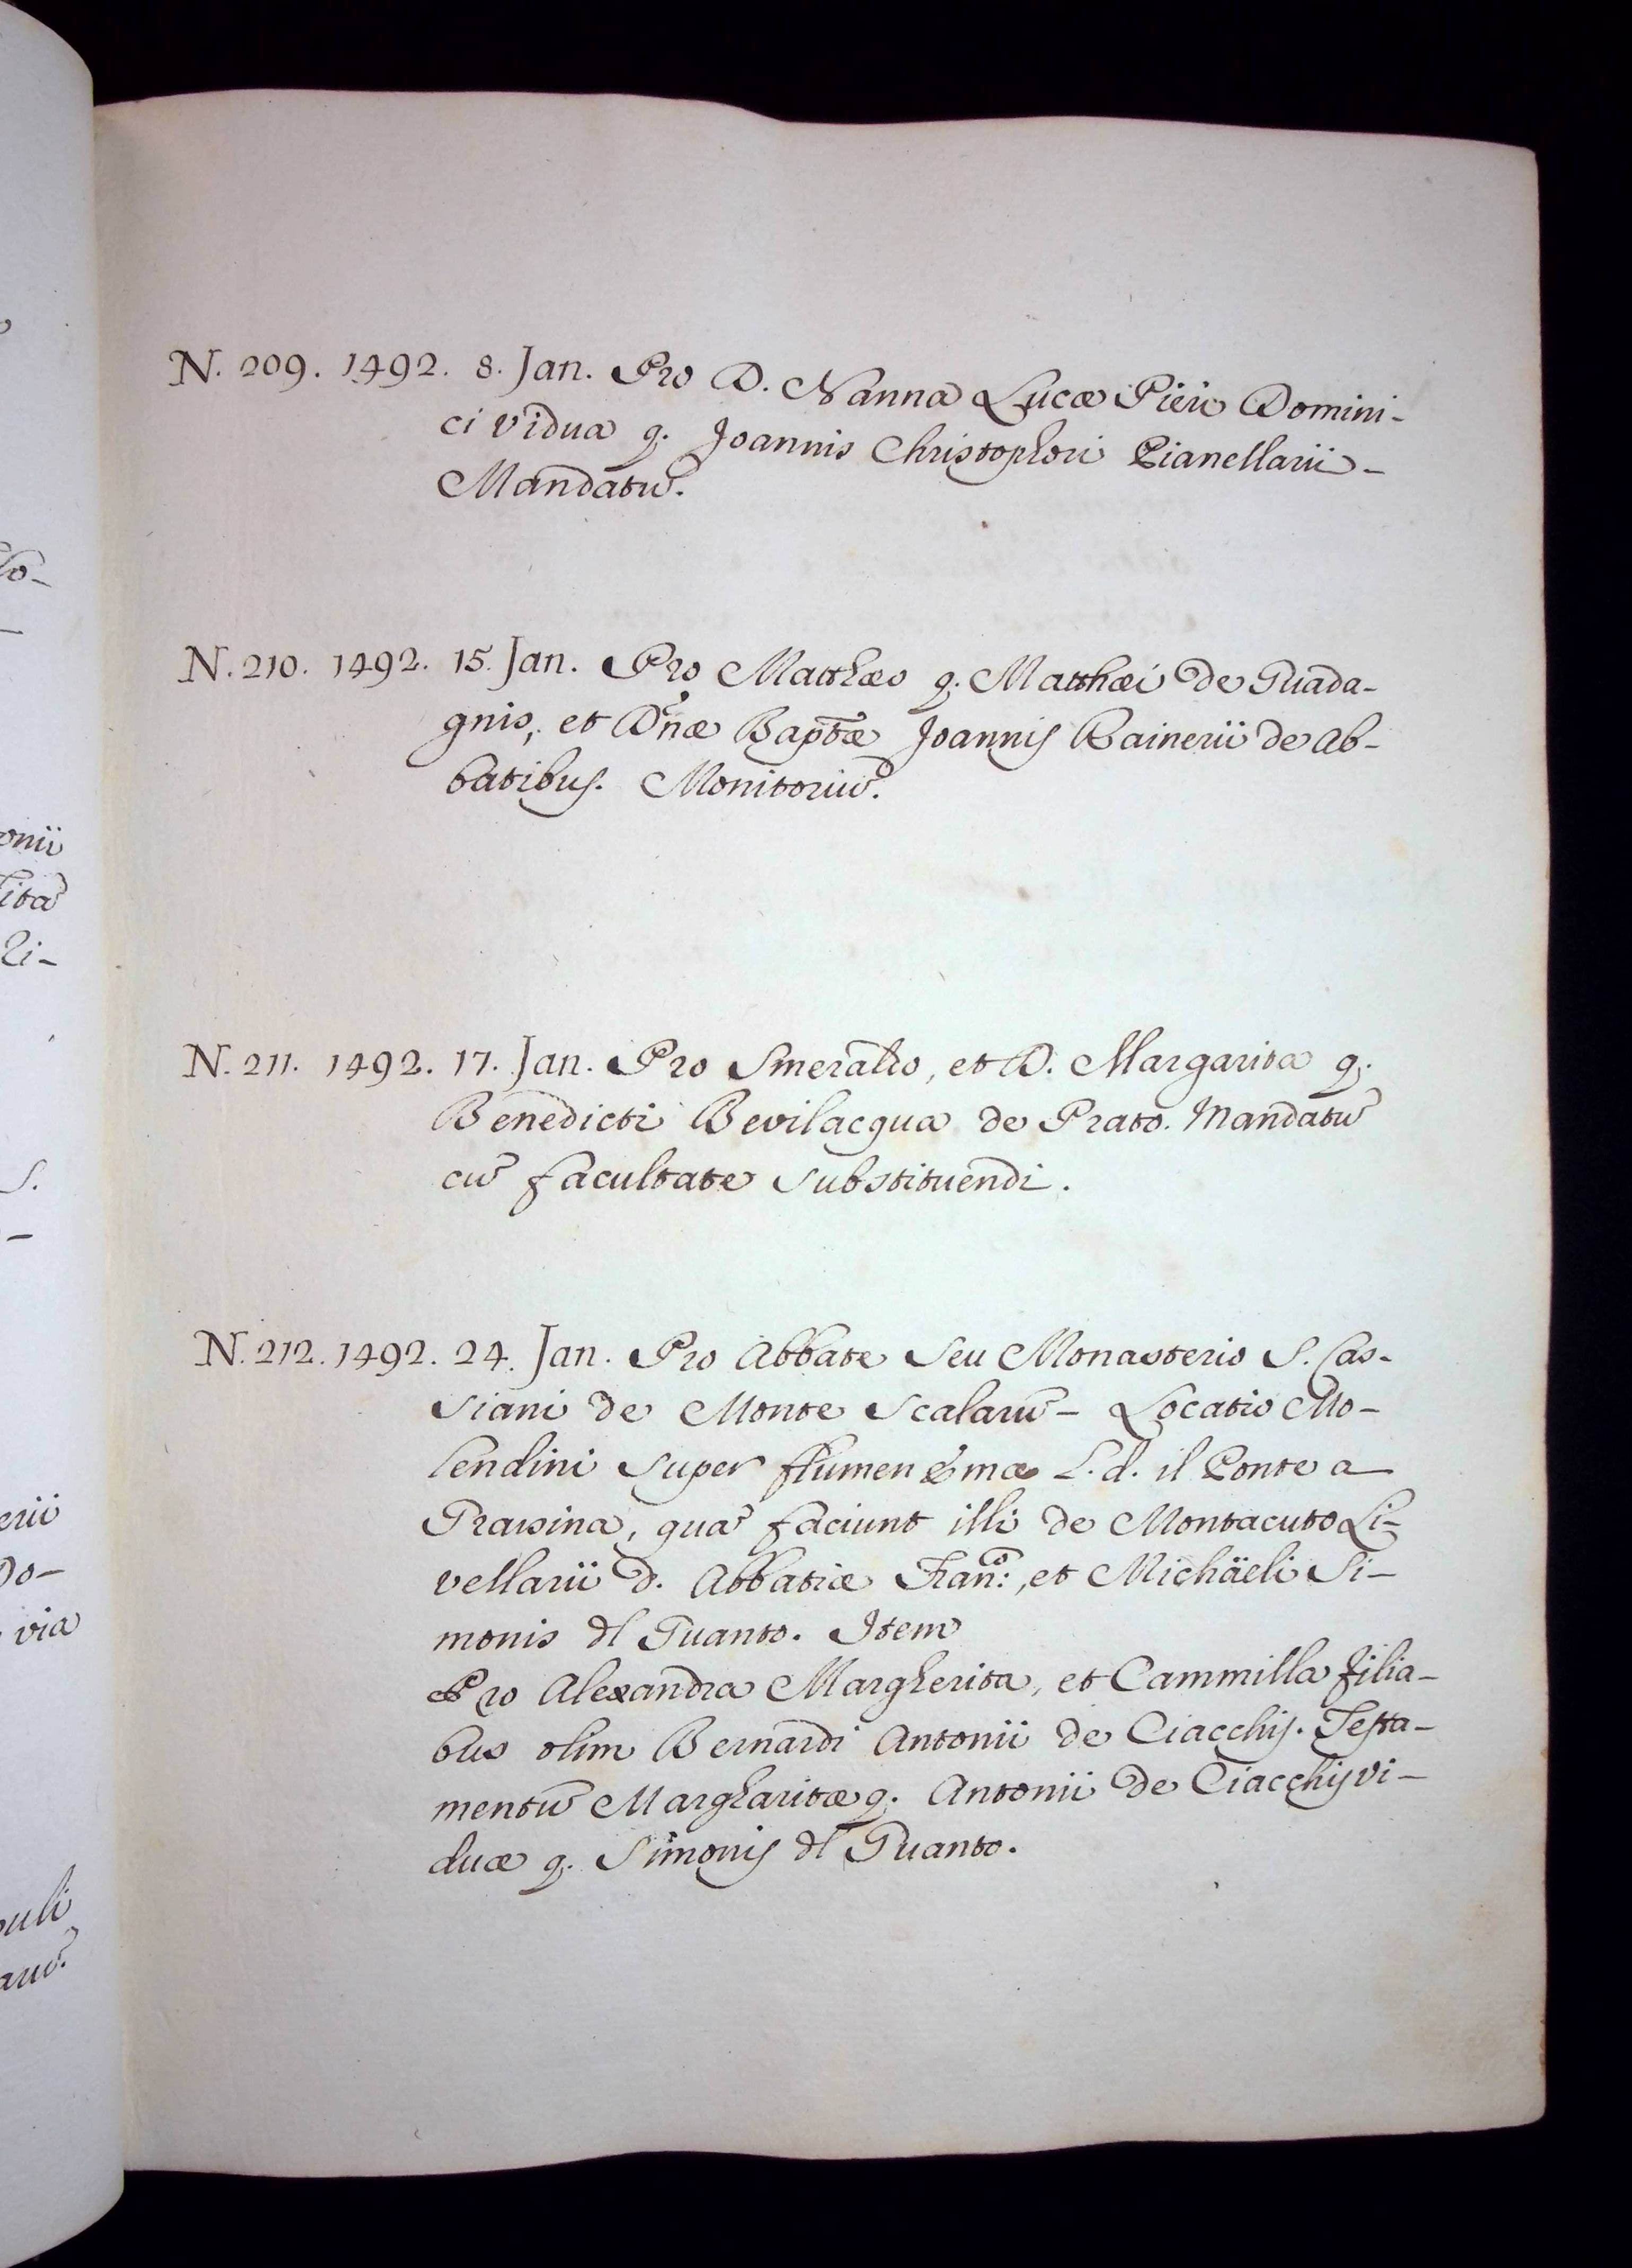 N. 209. 1492. 8. Jan. Pro D. Nanna Lucæ Pieri Domini-
ci vidua q. Joannis Christophori Pianellarii -
Mandatū.
N. 210. 1492. 15. Jan. Pro Matthæo q. Matthæi de Guada-
gnis, et Dn̄æ Bapt̄æ Joannis Rainerii de Ab-
batibus. Monitoriū.
N. 211. 1492. 17. Jan. Pro Smeraldo, et D. Margarita q.
Benedicti Bevilacqua de Prato. Mandatū
cū facultate substituendi.
N. 212. 1492. 24. Jan. Pro Abbate seu Monasterio S. Cas-
siani de Monte Scalarū - Locatio Mo-
lendini super flumen Emæ L. d. il Ponte a
quā faciunt illi de Montacuto Li-
vellarii d. Abbatiæ Fran:co, et Michäeli Si-
monis dl Guanto. Item
Pro Alexandra Margherita, et Cammilla filia-
bus olim Bernardi Antonii de Ciacchis. Testa-
mentū Margharitæ q. Antonii de Ciacchis vi-
duæ q. Simonis dl Guanto.